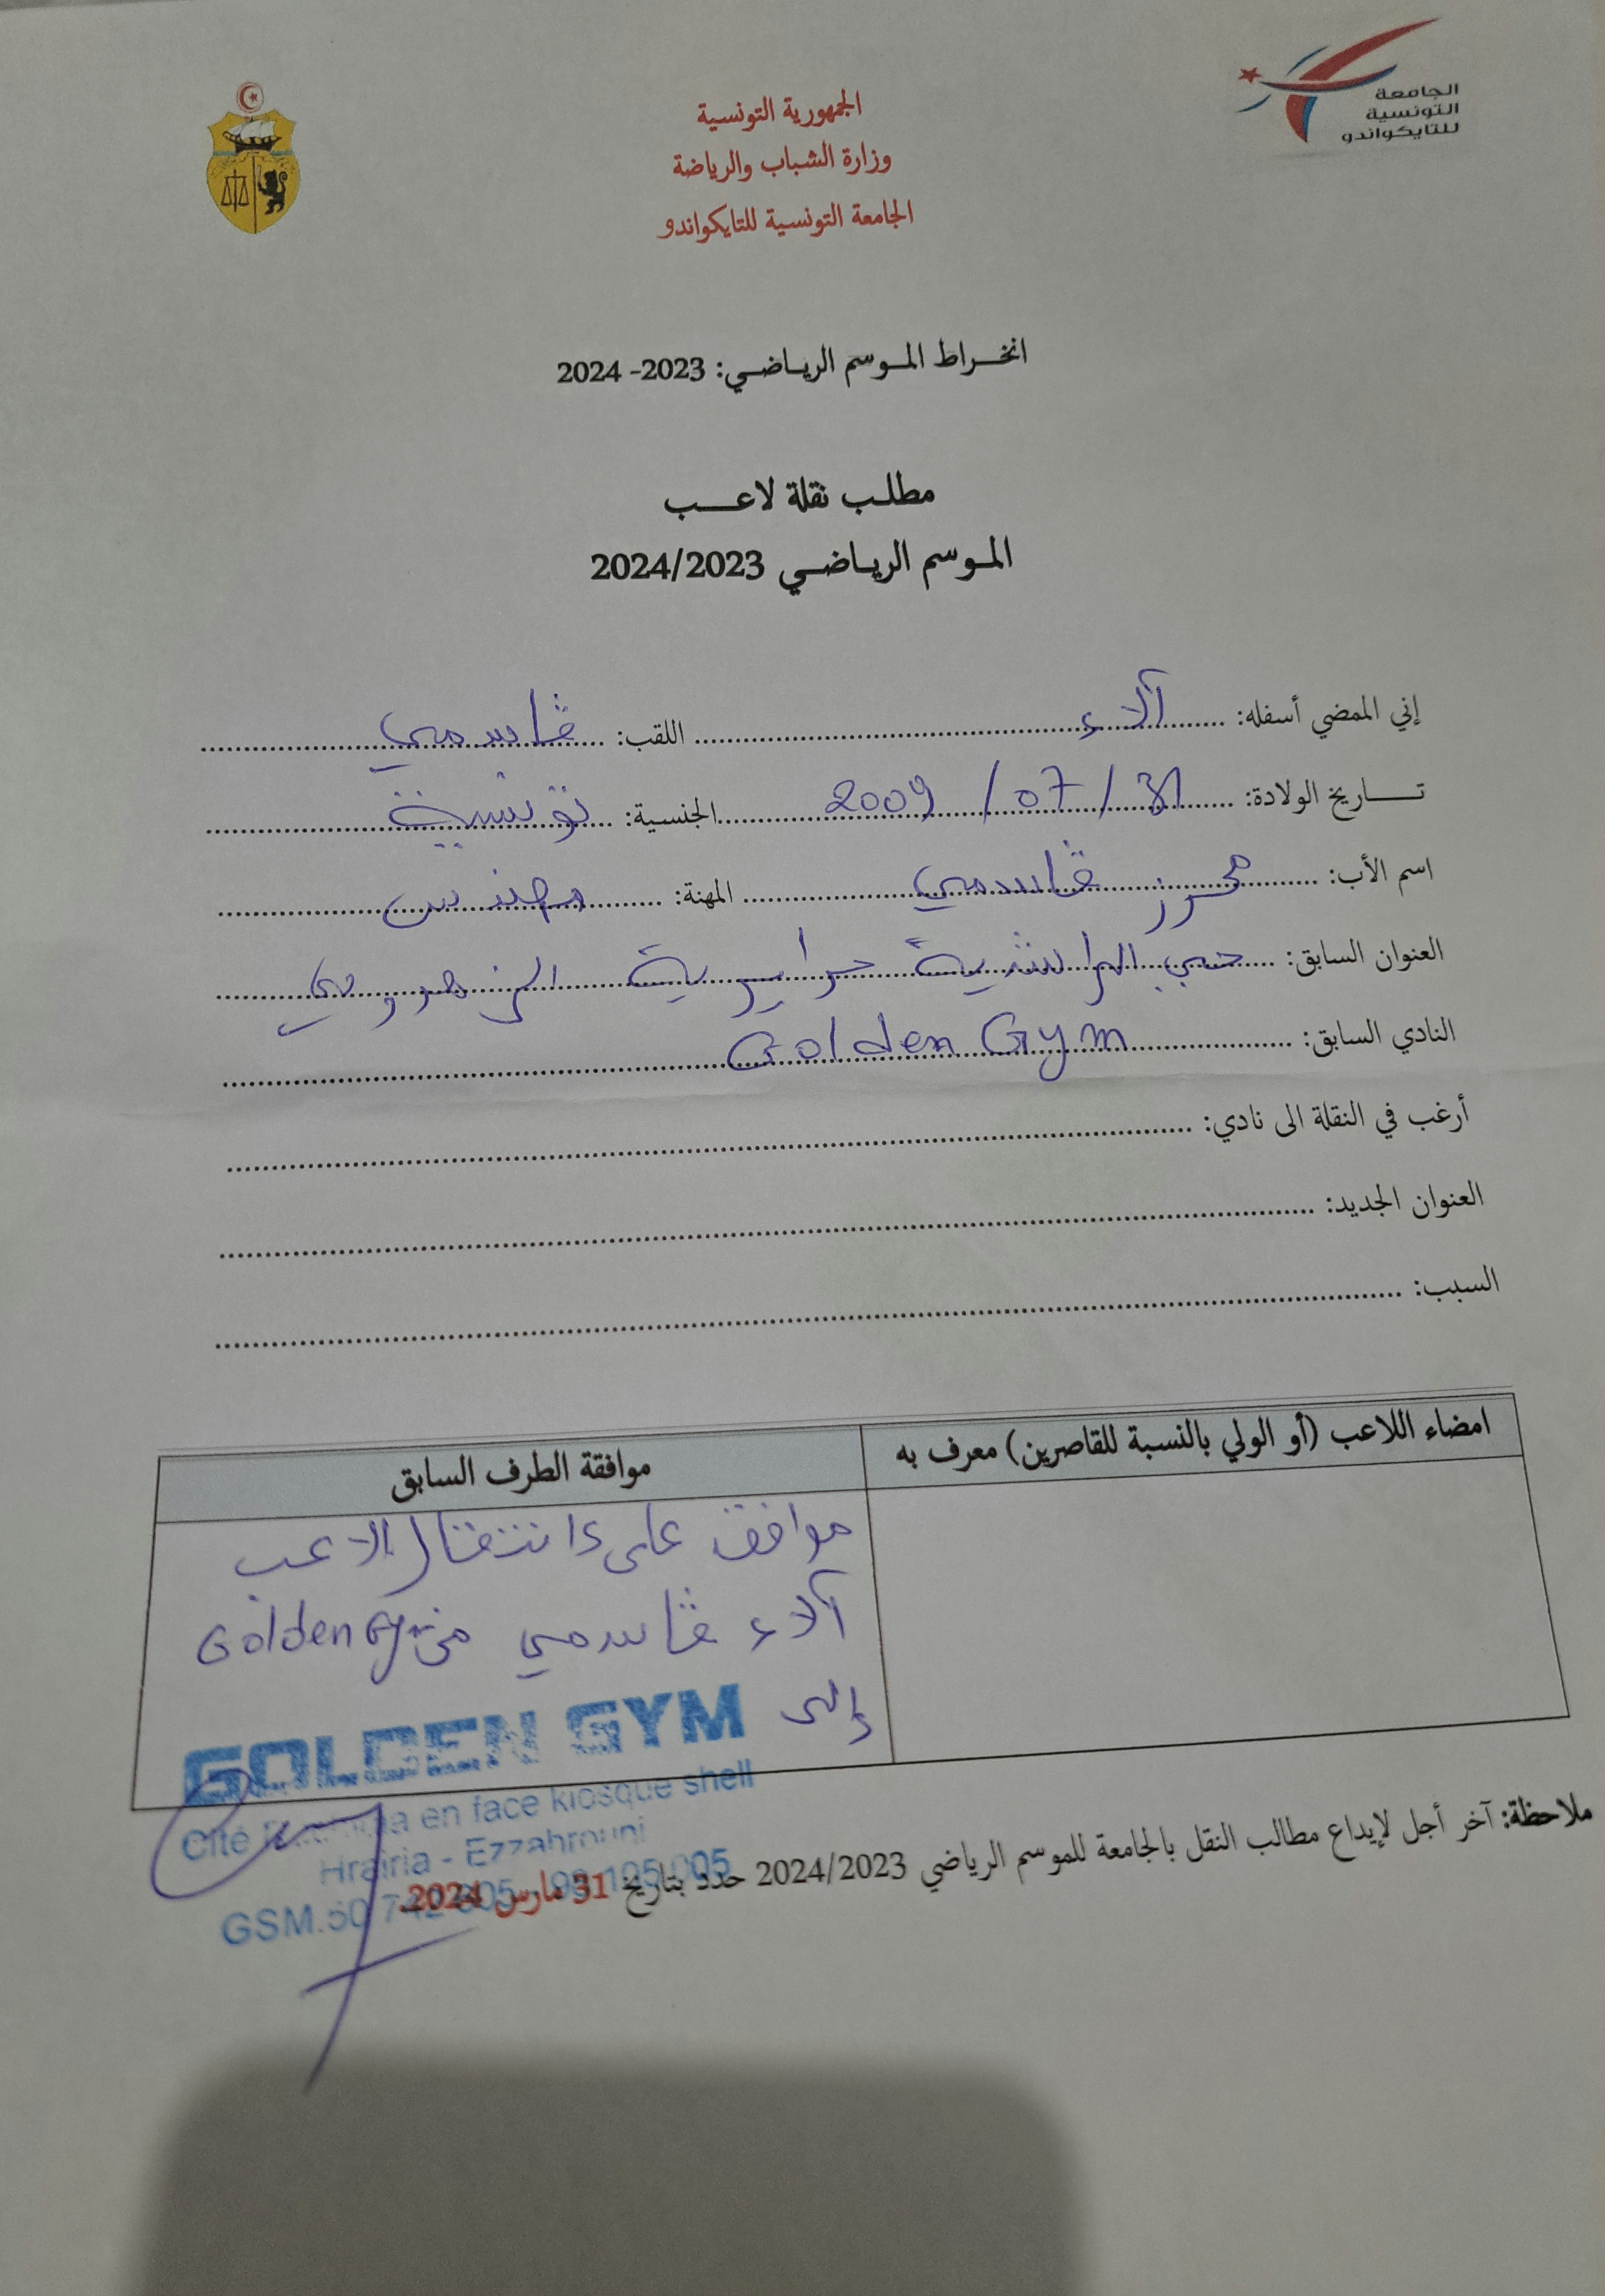 الجامعة
التونسية
للتايكواندو
الجمهورية التونسية
وزارة الشباب والرياضة
الجامعة التونسية للتايكواندو
انخراط الموسم الرياضي: 2023- 2024
مطلب نقلة لاعب
الموسم الرياضي 2024/2023
إني الممضي أسفله: آلاء اللقب: ڤاسمي
تاريخ الولادة: 31 / 07 / 2009 الجنسية: تونسية
اسم الأب: محرز ڤاسمي المهنة: مهندس
العنوان السابق: حي الراشدية حرايرية الزهروني
النادي السابق: Golden Gym
أرغب في النقلة الى نادي:
العنوان الجديد:
السبب:
امضاء اللاعب (أو الولي بالنسبة للقاصرين) معرف به
موافقة الطرف السابق
موافق على انتقال الاعب
آلاء ڤاسمي من Golden Gym
إلى
GOLDEN GYM
Cité en face kiosque shell
Hrairia - Ezzahrouni
GSM.50
ملاحظة: آخر أجل لإيداع مطالب النقل بالجامعة للموسم الرياضي 2024/2023 حدد بتاريخ 31 مارس 2024.